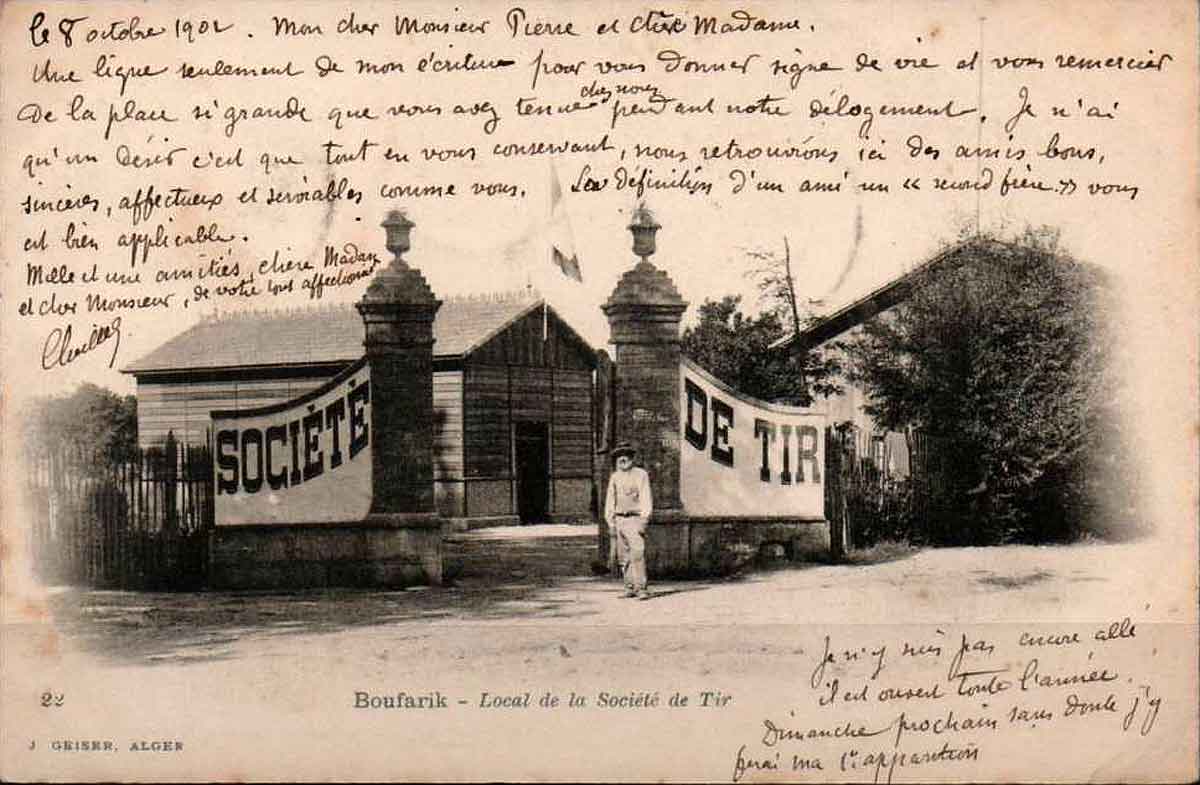 le 8 octobre 1902. Mon cher Monsieur Pierre et chère Madame.
Une ligne seulement de mon écriture pour vous donner signe de vie et vous remercier
De la place si grande que vous avez tenue chez nous pendant notre délogement. Je n'ai
qu'un désir c'est que tout en vous conservant, nous retrouvions ici des amis bons,
sincères, affectueux et serviables comme vous. La définition d'un ami un « second frère » vous
est bien applicable.
Mille et une amitiés, chère Madame
et cher Monsieur, de votre tout affectionné
SOCIÉTÉ
DE TIR
Je n'y suis pas encore allé
il est ouvert toute l'année.
Dimanche prochain sans doute j'y
ferai ma 1re apparition
22
Boufarik - Local de la Société de Tir
J. GEISER, ALGER